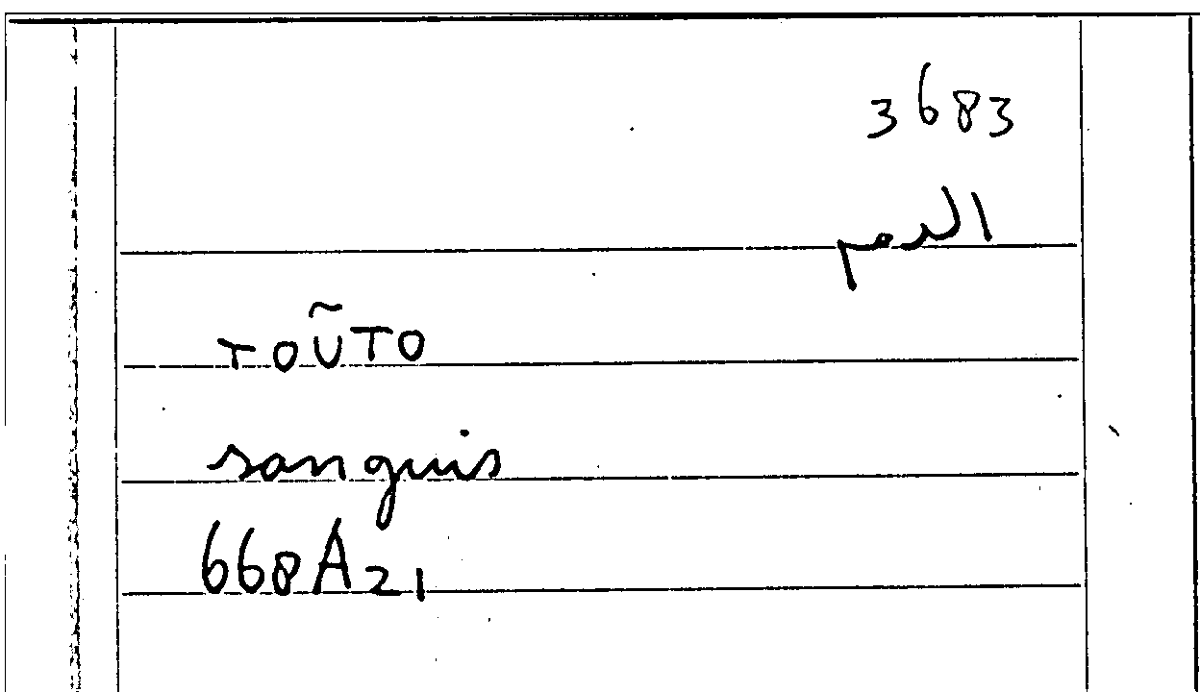 3683
الدم
τοῦτο
sanguis
668A21